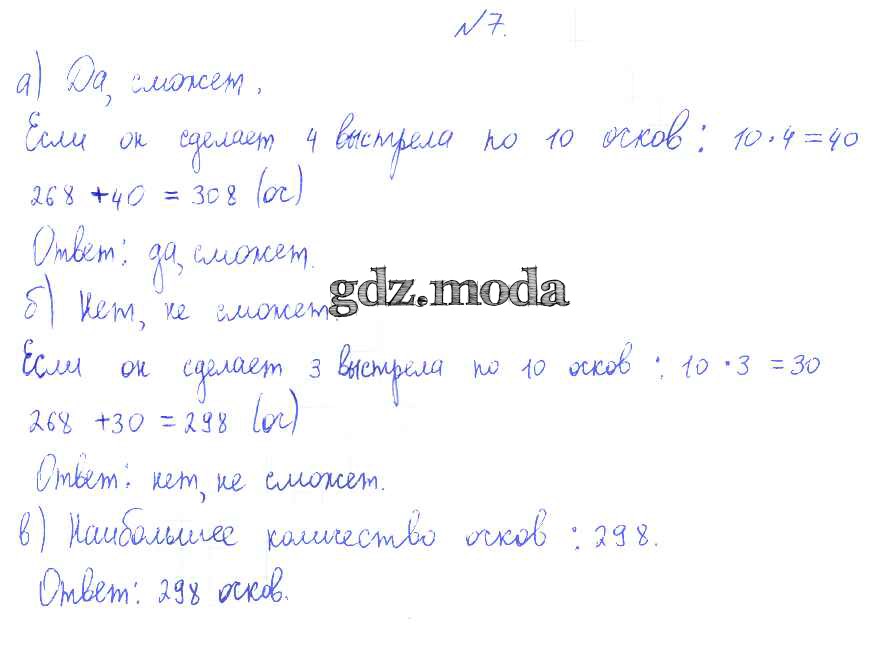 №7.
а) Да, сможет.
Если он сделает 4 выстрела по 10 очков: 10·4=40
268 +40 = 308 (оч)
Ответ: да, сможет.
gdz.moda
б) Нет, не сможет.
Если он сделает 3 выстрела по 10 очков: 10·3=30
268 +30 =298 (оч)
Ответ: нет, не сможет.
в) Наибольшее количество очков: 298.
Ответ: 298 очков.